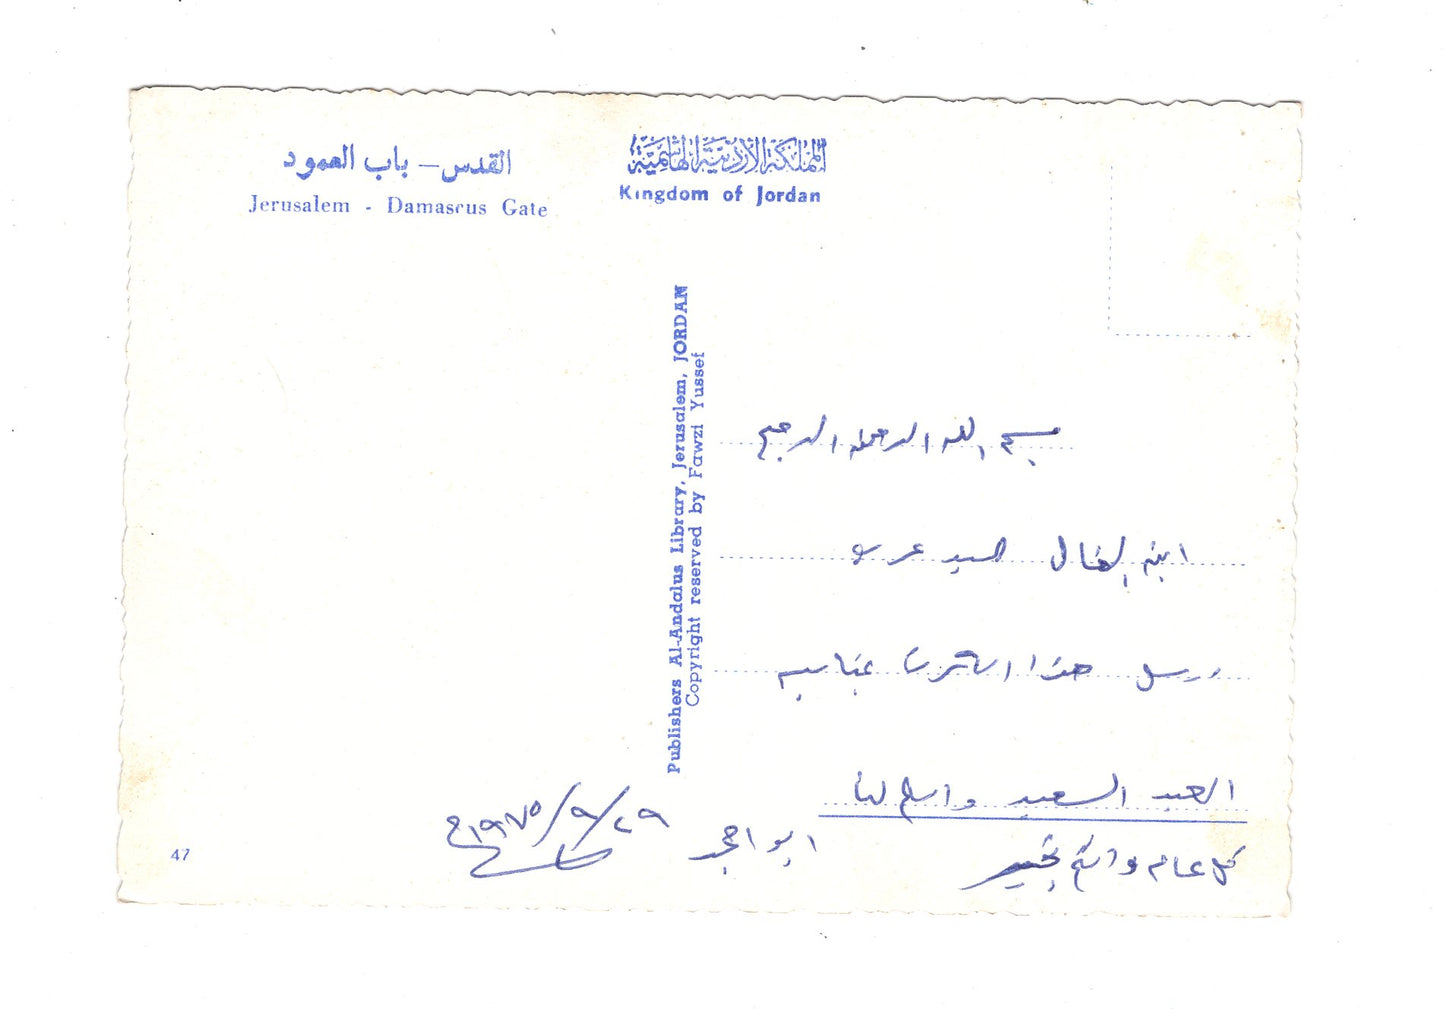 القدس – باب العمود
Jerusalem - Damascus Gate
المملكة الأردنية الهاشمية
Kingdom of Jordan
Publishers Al-Andalus Library, Jerusalem, JORDAN
Copyright reserved by Fawzi Yussef
بسم الله الرحمن الرحيم
ابن الخال السيد
هذا الكرت بمناسبة
العيد السعيد
كل عام وانتم بخير
ابو
٢٩/٩/١٩٧٥م
47